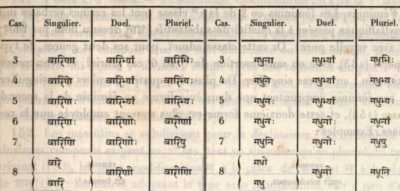 Cas. Singulier. Duel. Pluriel. Cas. Singulier. Duel. Pluriel.
3 वारिणा वारिभ्यां वारिभिः 3 मधुना मधुभ्यां मधुभिः
4 वारिणे वारिभ्यां वारिभ्यः 4 मधुने मधुभ्यां मधुभ्यः
5 वारिणः वारिभ्यां वारिभ्यः 5 मधुनः मधुभ्यां मधुभ्यः
6 वारिणः वारिणोः वारीणां 6 मधुनः मधुनोः मधूनां
7 वारिणि वारिणोः वारिषु 7 मधुनि मधुनोः मधुषु
वारे मधो
8 वारिणी वारीणि 8 मधुनी मधूनि
वारि मधु